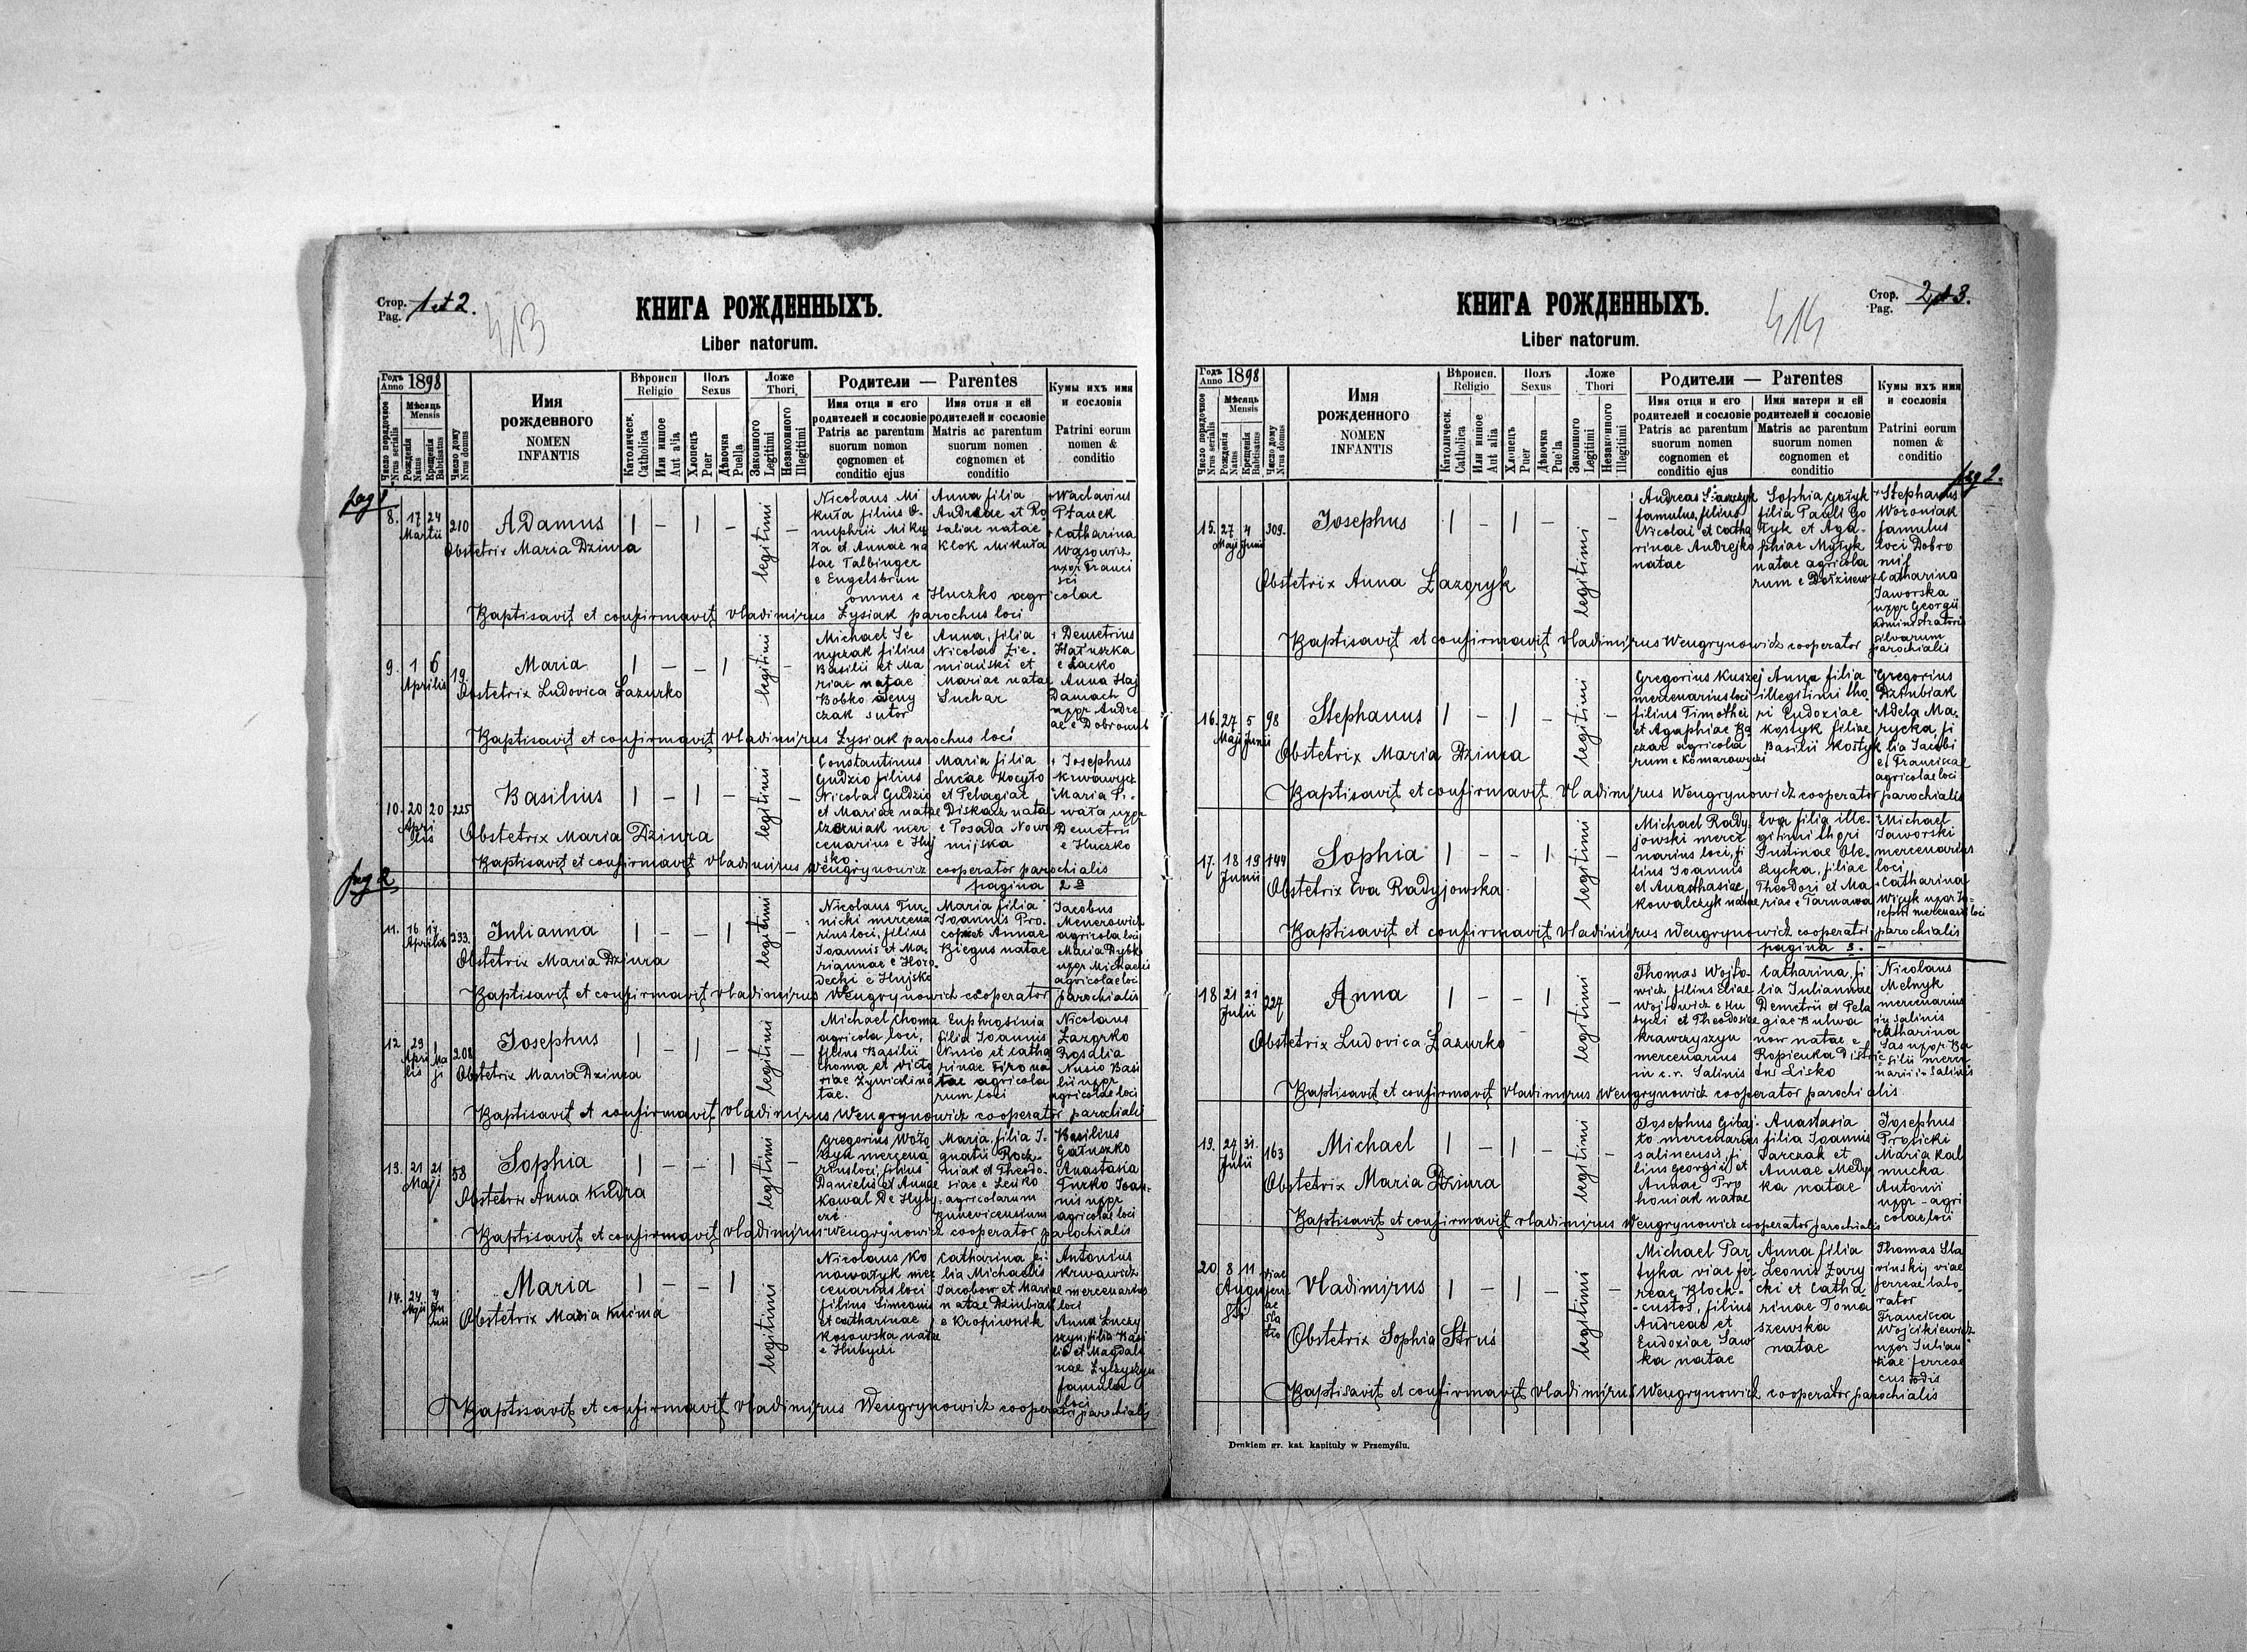 Стор.
Pag. 1 et 2.
413
КНИГА РОЖДЕННЫХЪ.
Liber natorum.
Годъ
Anno 1898
Мѣсяць
Mensis
Число порядочное
Nrus serialis
Рожденія
Natus
Крещенія
Babtisatus
Число дому
Nrus domus
Имя
рожденного
NOMEN
INFANTIS
Вѣроисп
Religio
Католическ.
Catholica
Или инное
Aut a'lia
Полъ
Sexus
Хлопець
Puer
Дѣвочка
Puella
Ложе
Thori
Законного
Legitimi
Незаконного
Illegitimi
Родители — Parentes
Имя отця и его
родителей и сословіе
Patris ac parentum
suorum nomen
cognomen et
conditio ejus
Имя отця и ей
родителей и сословіе
Matris ac parentum
suorum nomen
cognomen et
conditio
Кумы ихъ имя
и сословія
Patrini eorum
nomen &
conditio
pag 1
8. 17 24
Martii
210
Adamus
Obstetrix Maria Dziura
legitimi
Nicolaus Mi
kuła filius O-
nuphrii Miku
ła et Annae na
tae Talbinger
e Engelsbrun
Anna filia
Andreae et Ro
saliae natae
Klok Mikuła
omnes e Huczko agricolae
Waclavius
Ptanek
Catharina
Wąsowicz
uxor Franci
sci
Baptisavit et confirmavit Vladimirus Łysiak parochus loci
9. 1 6
Aprilis
19
Maria
Obstetrix Ludovica Łazurko
legitimi
Michael Se
nyczak filius
Basilii et Ma
riae natae
Bobko Seny
czak sutor
Anna, filia
Nicolai Zie-
miański et
Mariae natae
Suchar
Demetrius
Hałuszka
e Lacko
Anna Haj
Damach
uxor Andre
ae e Dobromil
Baptisavit et confirmavit Vladimirus Łysiak parochus loci
10. 20 20
Apri
lis
225
Basilius
Obstetrix Maria Dziura
legitimi
Constantinus
Gudzio filius
Nicolai Gudzio
et Mariae natae
Czerniak mer
cenarius e Huj
sko.
Maria filia
Lucae Kocyło
et Pelagiae
Diskacz natae
e Posada Nowo
mijska
Josephus
Krwawycz
Maria Pi-
wała uxor
Demetrii
e Huczko
Baptisavit et confirmavit Vladimirus Wengrynowicz cooperator parochialis
pag 2
pagina 2 a
11. 16 17
Aprilis
233.
Julianna
Obstetrix Maria Dziura
legitimi
Nicolaus Tur-
nicki mercena
rius loci, filius
Joannis et Ma-
riannae e Horo
decki e Hujsko
Maria filia
Joannis Pro-
cop et Annae
Biegus natae
Jacobus
Menerowicz
agricola loci
Maria Dybko
uxor Michaelis
agricolae loci
Baptisavit et confirmavit Vladimirus Wengrynowicz cooperator parochialis
12 29 1
Apri Ma
lis ji
208
Josephus
Obstetrix Maria Dziura
legitimi
Michael Choma
agricola loci,
filius Basilii
Choma et Victo
riae Żywicki na
tae.
Euphrosinia
filia Joannis
Nusio et Catha
rinae Firo na
tae agricola
rum loci
Nicolaus
Łazorko
Rosalia
Nusio Basi
lii uxor
agricolae loci
Baptisavit et confirmavit Vladimirus Wengrynowicz cooperator parochialis
13. 21 21
Maji
58
Sophia
Obstetrix Anna Kudra
legitimi
Gregorius Woło
szyn mercena
rius loci, filius
Danielis et Annae
Kowal De Hyby
Maria filia I-
gnatii Rocz-
niak et Theodo-
siae e Leńko
agricolarum
Basilius
Gałuszko
Anastasia
Furko Joan-
nis uxor
agricolae loci
Baptisavit et confirmavit Vladimirus Wengrynowicz cooperator parochialis
14. 24 4
Maji Ju
nii
Maria
Obstetrix Maria Kuźma
legitimi
Nicolaus Ko
nowałyk mer
cenarius loci
filius Simeonis
et Catharinae
Kosowska natae
e Hubycki
Catharina fi-
lia Michaelis
Jacobow et Mariae
natae Dziubiak
e Kropiwnik
Antonius
Krwawicz
mercenarius
loci
Anna Łuczy
szyn, filia Basi
lii et Magdale
nae Łylszyszyn
famula
loci
Baptisavit et confirmavit Vladimirus Wengrynowicz cooperator parochialis
Стор.
Pag. 2 et 3.
414
КНИГА РОЖДЕННЫХЪ.
Liber natorum.
Годъ
Anno 1898
Мѣсяць
Mensis
Число порядочное
Nrus serialis
Рожденія
Natus
Крещенія
Babtisatus
Число дому
Nrus domus
Имя
рожденного
NOMEN
INFANTIS
Вѣроисп.
Religio
Католическ.
Catholica
Или инное
Aut alia
Полъ
Sexus
Хлопець
Puer
Дѣвочка
Pue'la
Ложе
Thori
Законного
Legitimi
Незаконного
Illegitimi
Родители — Parentes
Имя отця и его
родителей и сословіе
Patris ac parentum
suorum nomen
cognomen et
conditio ejus
Имя матери и ей
родителей и сословіе
Matris ac parentum
suorum nomen
cognomen et
conditio
Кумы ихъ имя
и сословія
Patrini eorum
nomen &
conditio
pag 2.
15. 27 4
Maji Junii
309.
Josephus
Obstetrix Anna Łazoryk
legitimi
Andreas
famulus, filius
Nicolai et Catha
rinae Andrejko
natae
Sophia
filia Pauli Go
łyk et Aga-
phiae Mylyk
natae agricola
rum e
Stephanus
Woźniak
famulus
loci Dobro
mil
Catharina
Jaworska
uxor Georgii
administratoris
silvarum
Baptisavit et confirmavit Vladimirus Wengrynowicz cooperator parochialis
16. 27 5
Maji Junii
98
Stephanus
Obstetrix Maria Dziura
legitimi
Gregorius Kuszej
mercenarius loci
filius Timothei
et Agaphiae Ba
czar agricola
rum e Komarowycki
Anna filia
illegitimi tho
ri Eudoxiae
Kostyk filiae
Basilii Kostyk
Gregorius
Dziubiak
Adela Ma-
rycka, fi
lia Jacobi
et Franciscae
agricolae loci
Baptisavit et confirmavit Vladimirus Wengrynowicz cooperator parochialis
17. 18 19
Junii
144
Sophia
Obstetrix Eva Radyjowska
legitimi
Michael Rady-
jowski merce
narius loci, fi
lius Joannis
et Anasthasiae
Kowalczyk natae
Eva filia ille-
gitimi thori
Justinae Ole-
szycka, filiae
Theodori et Ma
riae e Tarnawa
Michael
Jaworski
mercenarius
loci
Catharina
Wicyk uxor Jo-
sephi mercenarii loci
Baptisavit et confirmavit Vladimirus Wengrynowicz cooperator parochialis
pagina 3. —
18 21 21
Julii
227
Anna
Obstetrix Ludovica Łazurko
legitimi
Thomas Wojto-
wicz filius Eliae
Wojtowicz e Hu
byckі et Theodosiae
Krawczyszyn
mercenarius
in c. r. Salinis
Catharina, fi
lia Juliannae
Demetrii et Pela
giae Bulwa
now natae e
Ropienka Distric
tus Lisko
Nicolaus
Melnyk
mercenarius
in Salinis
Catharina
Sas uxor Ba
silii merce
narii in Salinis
Baptisavit et confirmavit Vladimirus Wengrynowicz cooperator parochialis
19. 27 31.
Julii
163
Michael
Obstetrix Maria Dziura
legitimi
Josephus Gibaj-
ło mercenarius
salinensis, fi
lius Georgii et
Annae Pry
honiak natae
Anastasia
filia Joannis
Parczak et
Annae Medy
ka natae
Josephus
Pronicki
Maria Kal
mucka
Antonii
uxor - agri
colae, loci
Baptisavit et confirmavit Vladimirus Wengrynowicz cooperator parochialis
20 8 11
Augu
sti
viae
ferre
ae
sta
tio
Vladimirus
Obstetrix Sophia Struś
legitimi
Michael Par
tyka viae fer
reae Bloch-
custos, filius
Andreae et
Eudoxiae Saw
ka natae
Anna filia
Leonis Zary
cki et Catha
rinae Toma
szewska
natae
Thomas Sla
vinskij viae
ferreae labo-
rator
Francisca
Wojcikiewicz
uxor Julian
viae ferreae
custodis
Baptisavit et confirmavit Vladimirus Wengrynowicz cooperator parochialis
Drukiem gr. kat. kapituły w Przemyślu.